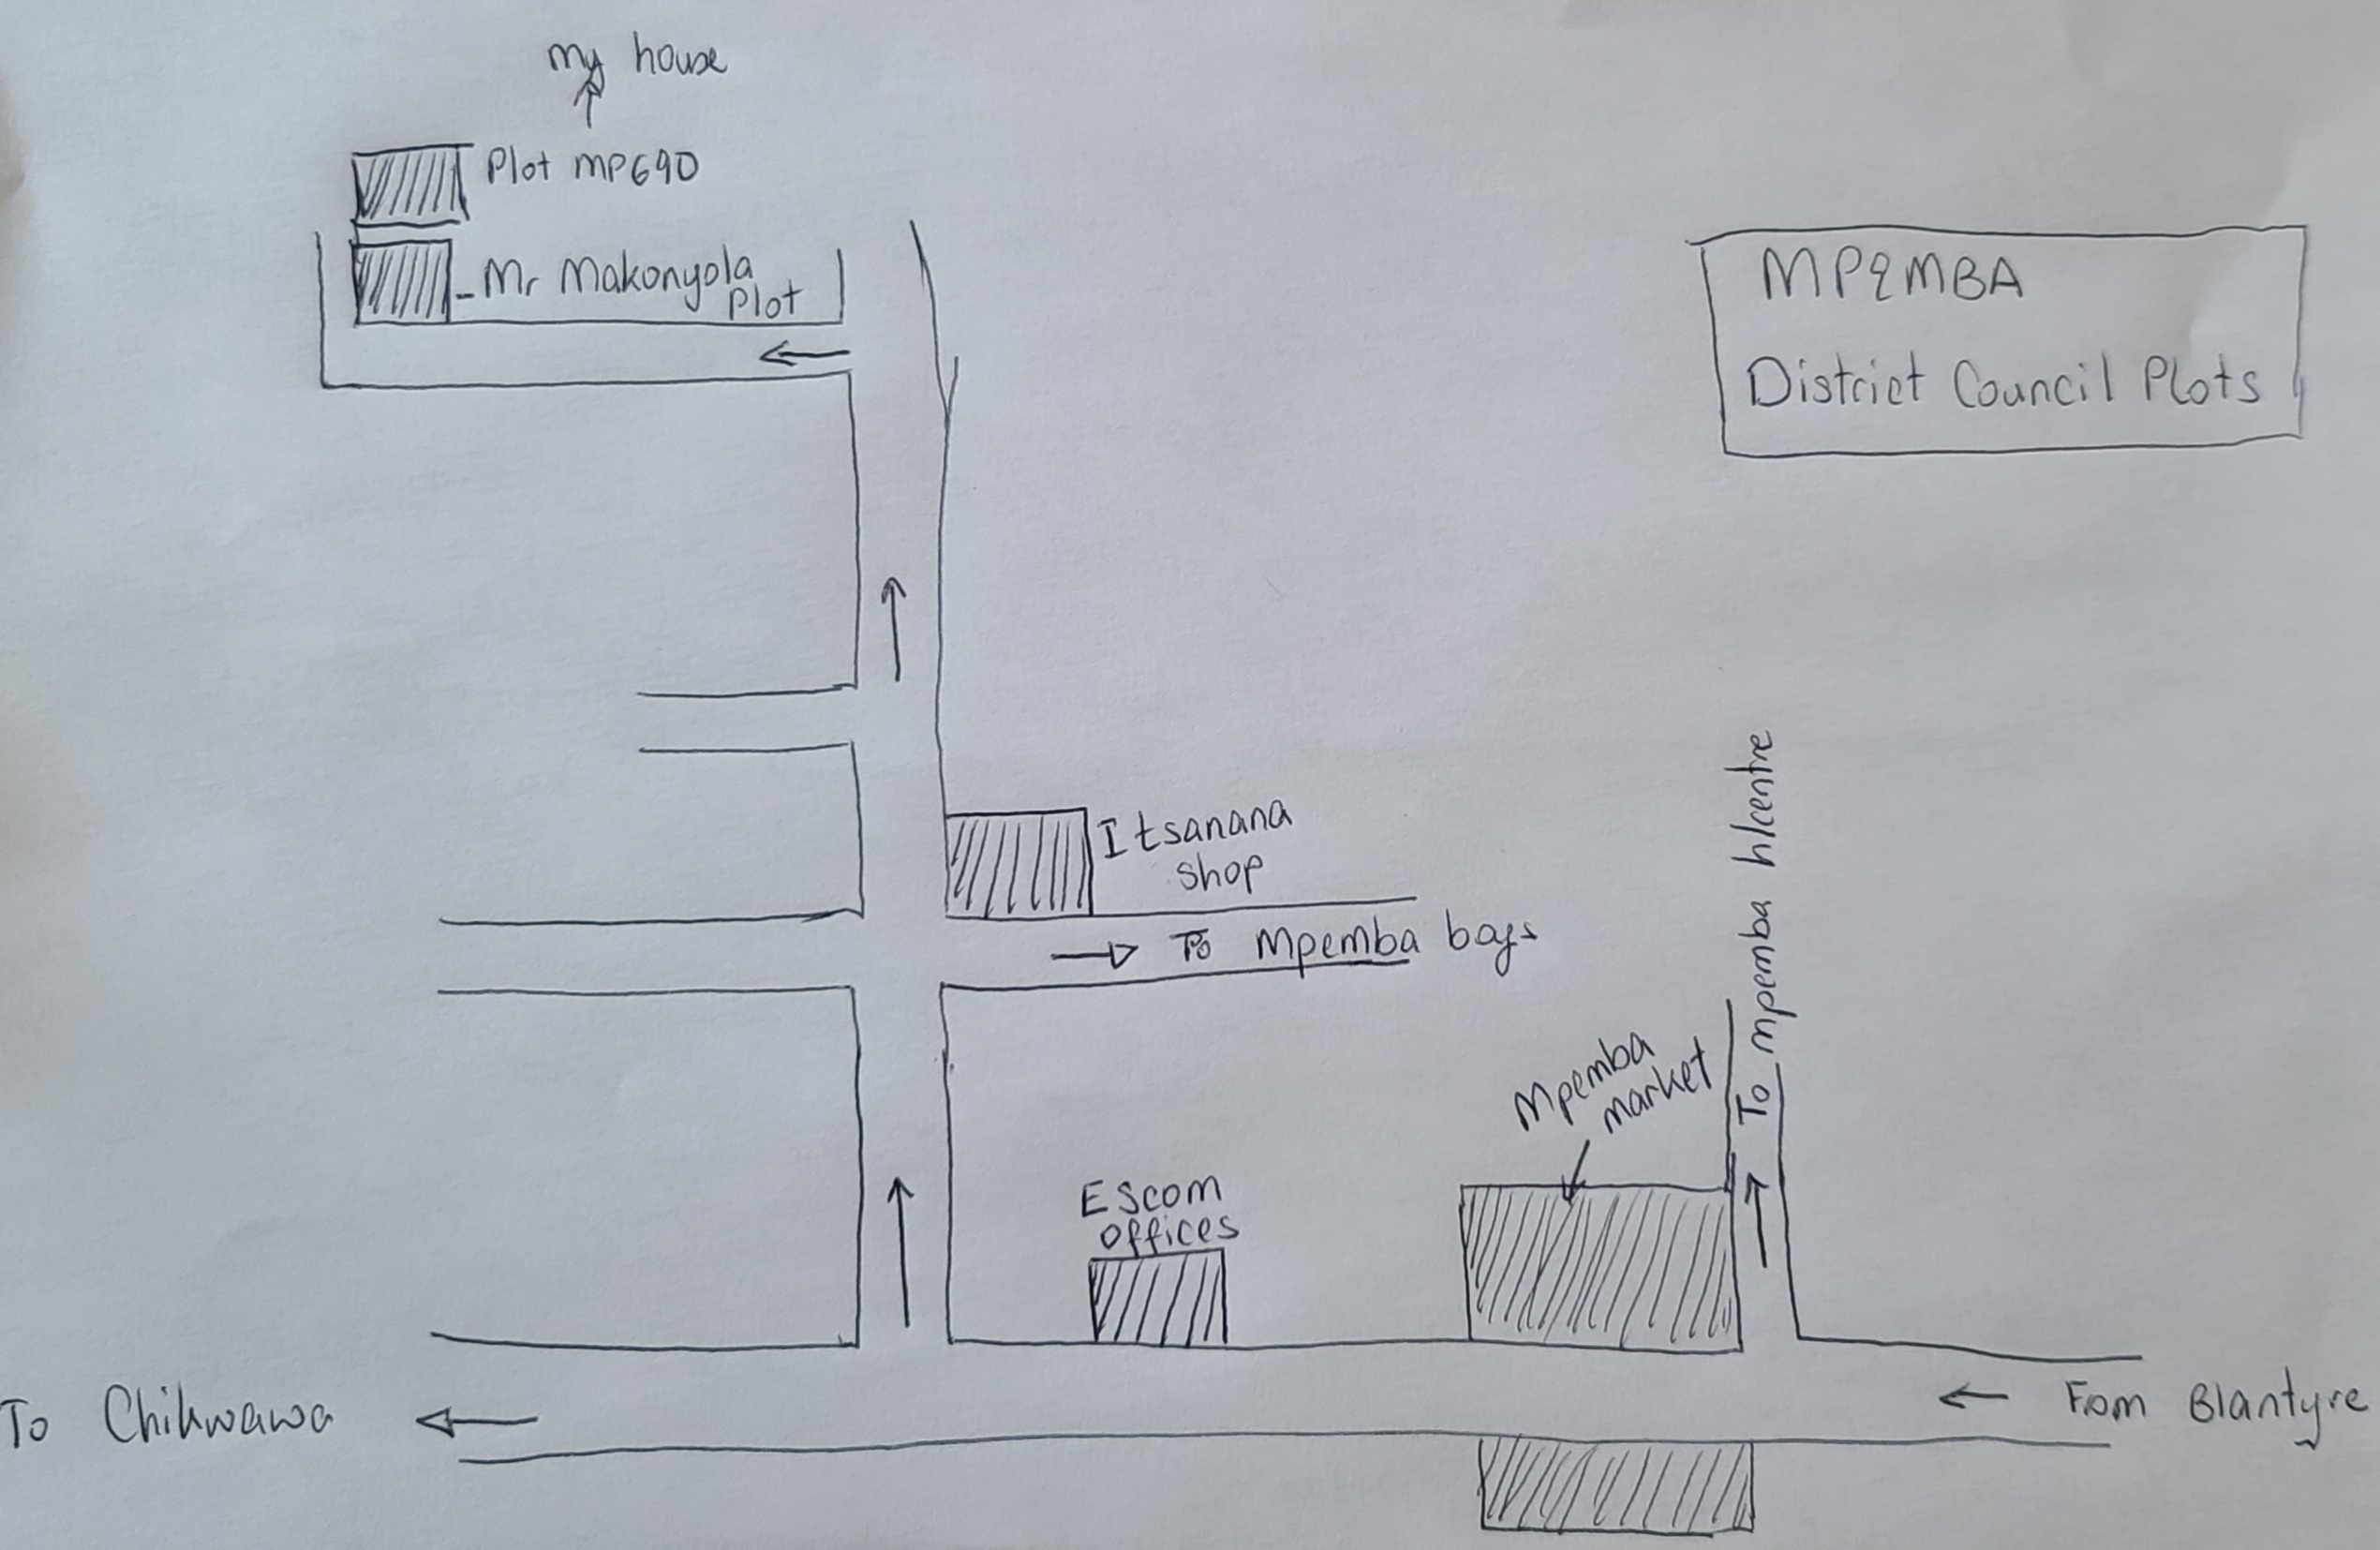 my house
Plot MP690
Mr Makonyola
Plot
MPEMBA
District Council Plots
Itsanana
shop
To Mpemba boys
To mpemba h/centre
Mpemba
market
Escom
offices
To Chikwawa
From Blantyre